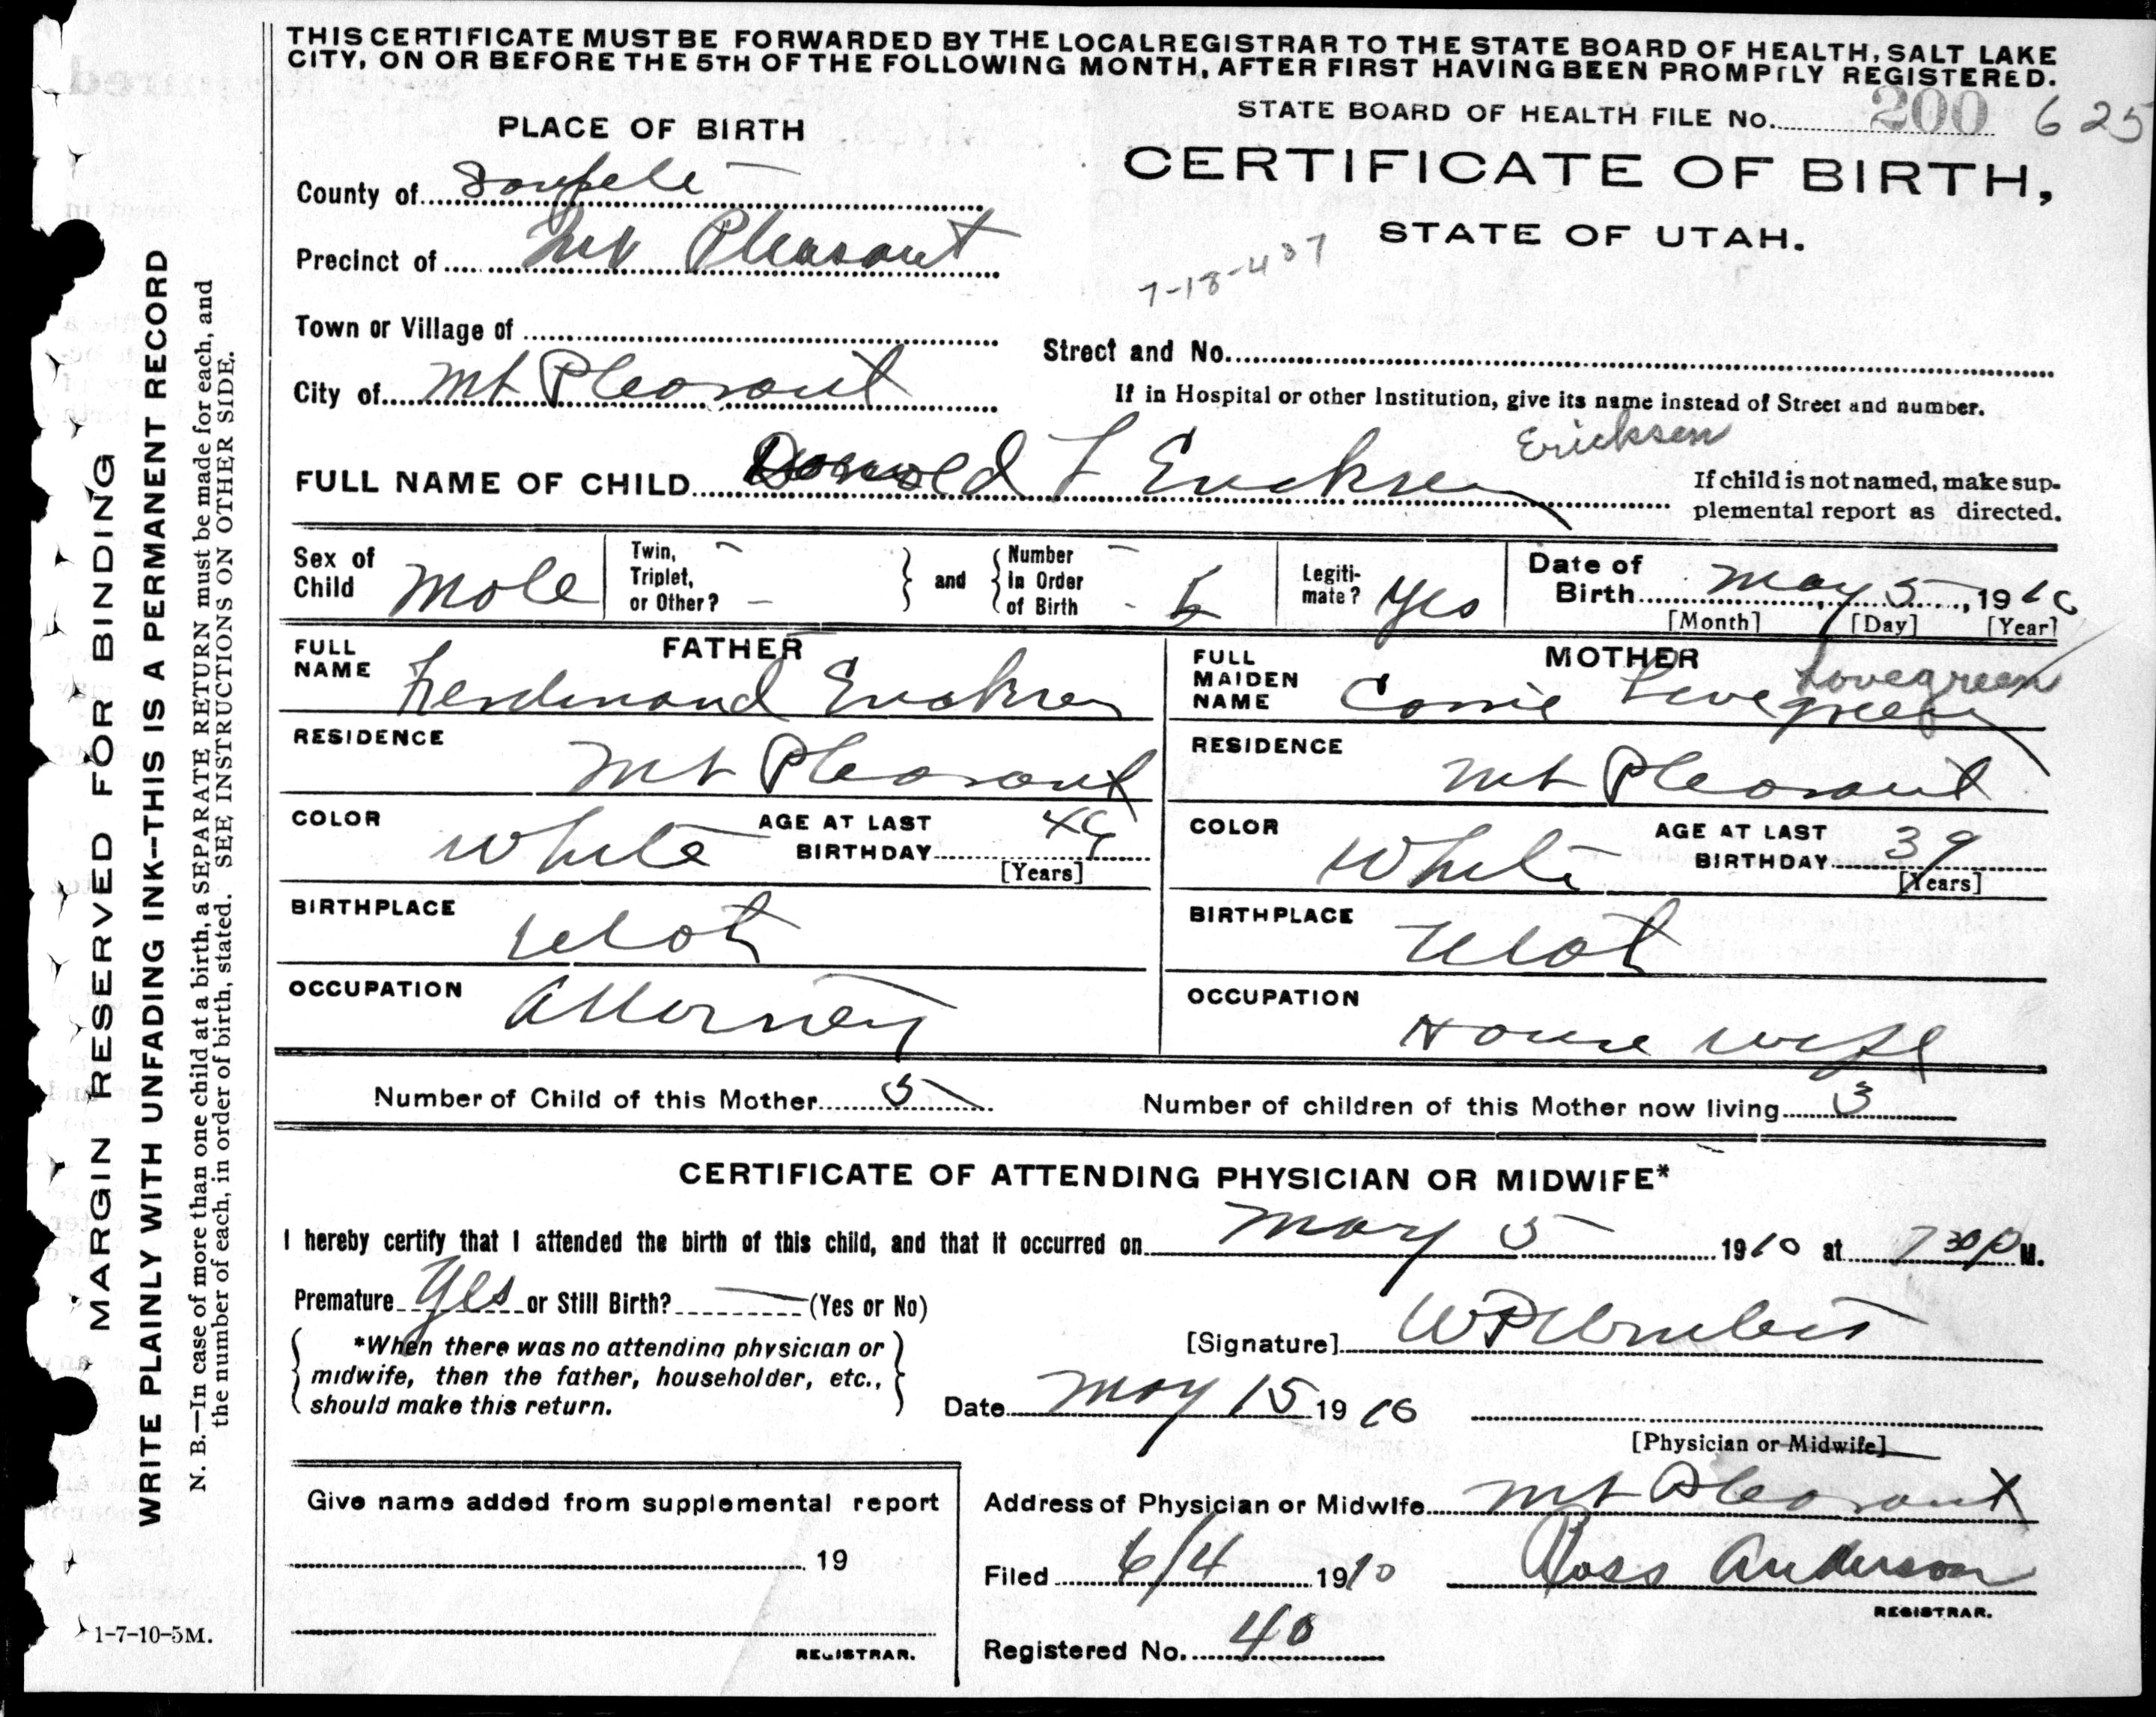 THIS CERTIFICATE MUST BE FORWARDED BY THE LOCAL REGISTRAR TO THE STATE BOARD OF HEALTH, SALT LAKE
CITY, ON OR BEFORE THE 5TH OF THE FOLLOWING MONTH, AFTER FIRST HAVING BEEN PROMPTLY REGISTERED.
STATE BOARD OF HEALTH FILE No. 200 625
PLACE OF BIRTH
CERTIFICATE OF BIRTH,
STATE OF UTAH.
County of Sanpete
Precinct of Mt Pleasant
7-18-437
Town or Village of
Street and No.
City of Mt Pleasant
If in Hospital or other Institution, give its name instead of Street and number.
Ericksen
FULL NAME OF CHILD Donald L Ericksen
If child is not named, make sup-
plemental report as directed.
Sex of Child Male
Twin, Triplet, or Other? —
and
Number in Order of Birth
Legiti-mate? Yes
Date of Birth May 5, 1910
[Month] [Day] [Year]
FATHER
FULL NAME Ferdinand Ericksen
RESIDENCE Mt Pleasant
COLOR White
AGE AT LAST BIRTHDAY
[Years]
BIRTHPLACE Utah
OCCUPATION Attorney
MOTHER
Lovegreen
FULL MAIDEN NAME Lovegreen
RESIDENCE Mt Pleasant
COLOR White
AGE AT LAST BIRTHDAY 39
[Years]
BIRTHPLACE Utah
OCCUPATION House wife
Number of Child of this Mother 5
Number of children of this Mother now living 3
CERTIFICATE OF ATTENDING PHYSICIAN OR MIDWIFE*
I hereby certify that I attended the birth of this child, and that it occurred on May 5 1910 at 7 30 P M.
Premature Yes or Still Birth? — (Yes or No)
*When there was no attending physician or
midwife, then the father, householder, etc.,
should make this return.
[Signature]
Date May 15 1910
[Physician or Midwife]
Give name added from supplemental report
19
REGISTRAR.
Address of Physician or Midwife Mt Pleasant
Filed 6/4 1910 Ross Anderson
REGISTRAR.
Registered No. 40
MARGIN RESERVED FOR BINDING
WRITE PLAINLY WITH UNFADING INK—THIS IS A PERMANENT RECORD
N. B.—In case of more than one child at a birth, a SEPARATE RETURN must be made for each, and
the number of each, in order of birth, stated. SEE INSTRUCTIONS ON OTHER SIDE.
1-7-10-5M.